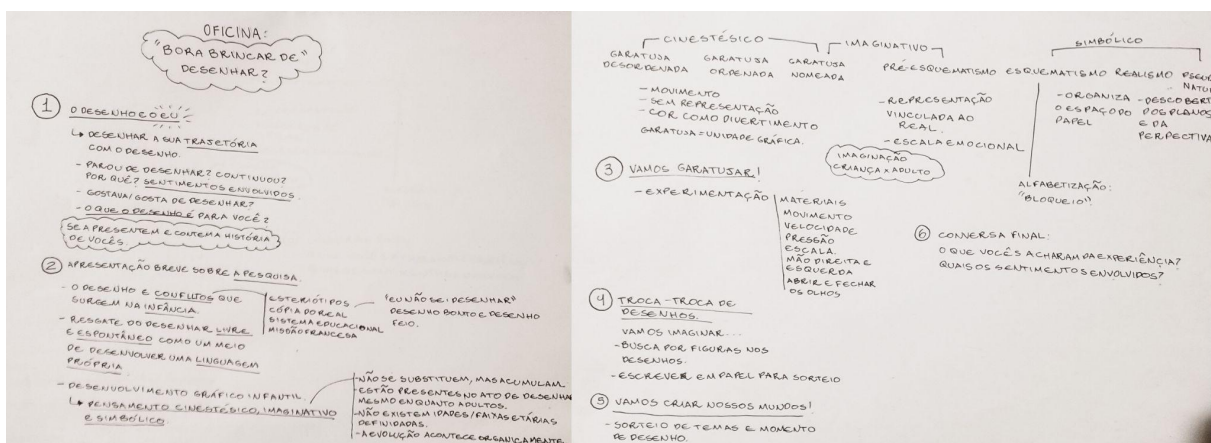 OFICINA:
"BORA BRINCAR DE"
DESENHAR?
1 O DESENHO E O EU
↳ DESENHAR A SUA TRAJETÓRIA
COM O DESENHO.
- PAROU DE DESENHAR? CONTINUOU?
POR QUÊ? SENTIMENTOS ENVOLVIDOS.
- GOSTAVA/GOSTA DE DESENHAR?
- O QUE O DESENHO É PARA VOCÊ?
SE APRESENTEM E CONTEM A HISTÓRIA
DE VOCÊS.
2 APRESENTAÇÃO BREVE SOBRE A PESQUISA.
- O DESENHO E CONFLITOS QUE
SURGEM NA INFÂNCIA.
ESTERIÓTIPOS
CÓPIA DO REAL
SISTEMA EDUCACIONAL
MISSÃO FRANCESA
"EU NÃO SEI DESENHAR"
DESENHO BONITO E DESENHO
FEIO.
- RESGATE DO DESENHAR LIVRE
E ESPONTÂNEO COMO UM MEIO
DE DESENVOLVER UMA LINGUAGEM
PRÓPRIA.
- DESENVOLVIMENTO GRÁFICO INFANTIL.
↳ PENSAMENTO CINESTÉSICO, IMAGINATIVO
E SIMBÓLICO.
- NÃO SE SUBSTITUEM, MAS ACUMULAM.
- ESTÃO PRESENTES NO ATO DE DESENHA
MESMO ENQUANTO ADULTOS.
- NÃO EXISTEM IDADES/FAIXAS ETÁRIAS
DEFINIDADAS.
- A EVOLUÇÃO ACONTECE ORGANICAMENTE
CINESTÉSICO
GARATUJA DESORDENADA
GARATUJA ORDENADA
GARATUJA NOMEADA
- MOVIMENTO
- SEM REPRESENTAÇÃO
- COR COMO DIVERTIMENTO
GARATUJA = UNIDADE GRÁFICA.
IMAGINATIVO
PRÉ-ESQUEMATISMO
- REPRESENTAÇÃO
VINCULADA AO
REAL.
- ESCALA EMOCIONAL
IMAGINAÇÃO
CRIANÇA X ADULTO
SIMBÓLICO
ESQUEMATISMO REALISMO PSEU
NATU
- ORGANIZA
O ESPAÇO DO
PAPEL
- DESCOBERT
DOS PLANOS
E DA
PERPECTIVA
ALFABETIZAÇÃO:
"BLOQUEIO".
3 VAMOS GARATUJAR!
- EXPERIMENTAÇÃO
MATERIAIS
MOVIMENTO
VELOCIDADE
PRESSÃO
ESCALA.
MÃO DIREITA E
ESQUERDA
ABRIR E FECHAR
OS OLHOS
4 TROCA-TROCA DE
DESENHOS.
VAMOS IMAGINAR...
- BUSCA POR FIGURAS NOS
DESENHOS.
- ESCREVER EM PAPEL PARA SORTEIO
5 VAMOS CRIAR NOSSOS MUNDOS!
- SORTEIO DE TEMAS E MOMENTO
DE DESENHO.
6 CONVERSA FINAL:
O QUE VOCÊS ACHARAM DA EXPERIÊNÇIA?
QUAIS OS SENTIMENTOS ENVOLVIDOS?